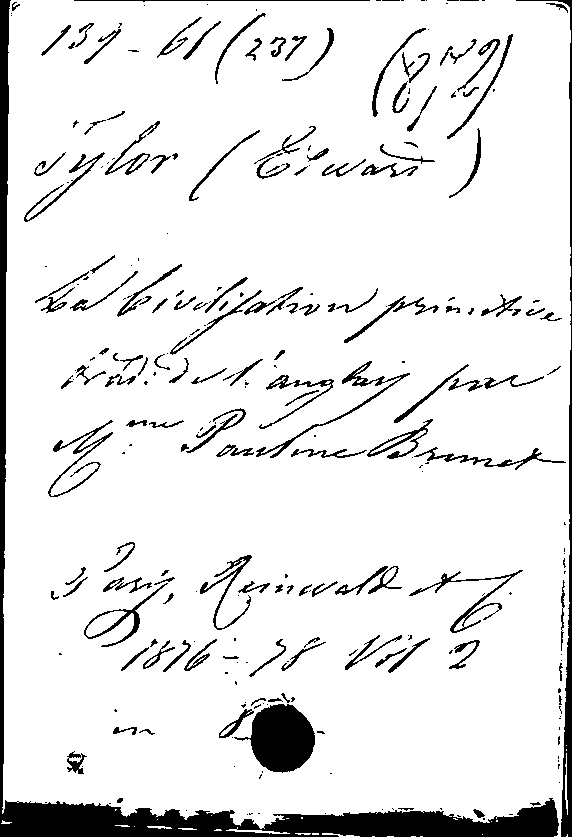 139-61 (237)
Tylor (Edward)
La Civilisation primitive
trad. de l'anglais par
Mme Pauline Brunet
Paris, Reinwald et C.
1876-78 Vol 2
in 8